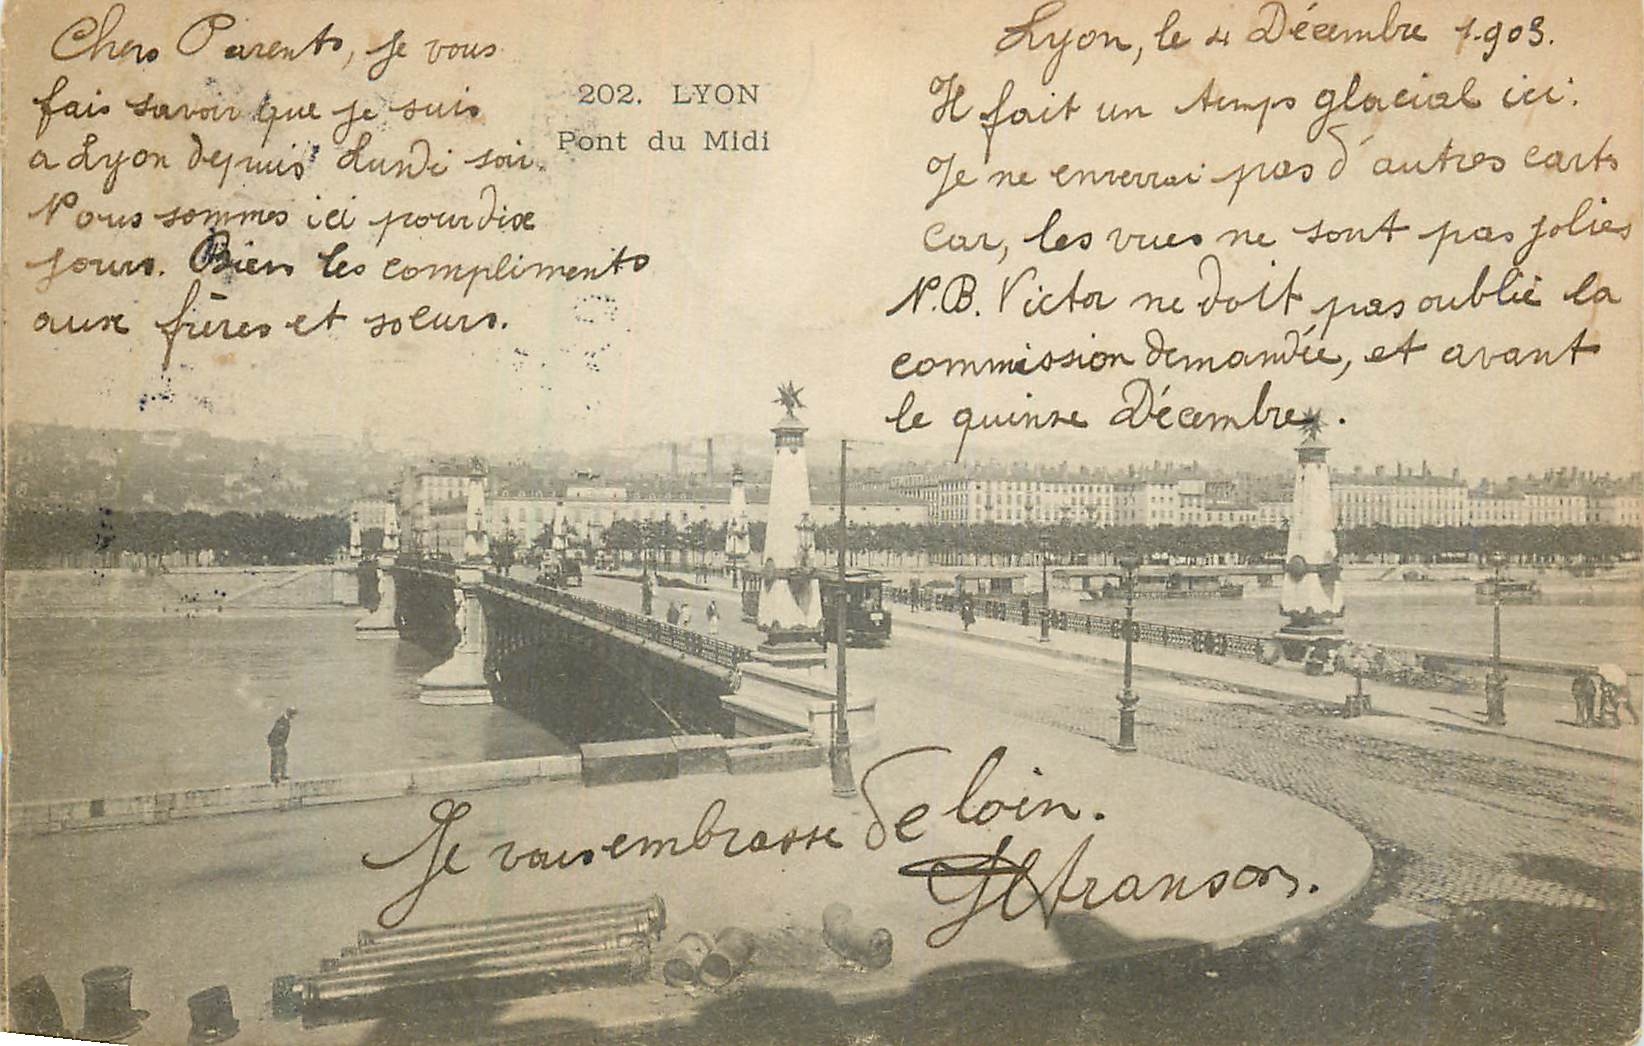 Chers Parents, je vous
fais savoir que je suis
a Lyon depuis Lundi soir.
Nous sommes ici pour dix
jours. Bien les compliments
aux frères et soeurs.
202. LYON
Pont du Midi
Lyon, le 4 Décembre 1.903.
Il fait un temps glacial ici.
Je ne enverrai pas d'autres carts
car, les vues ne sont pas jolies
N.B. Victor ne doit pas oublié la
commission demandée, et avant
le quinze Décembre.
Je vous embrasse de loin.